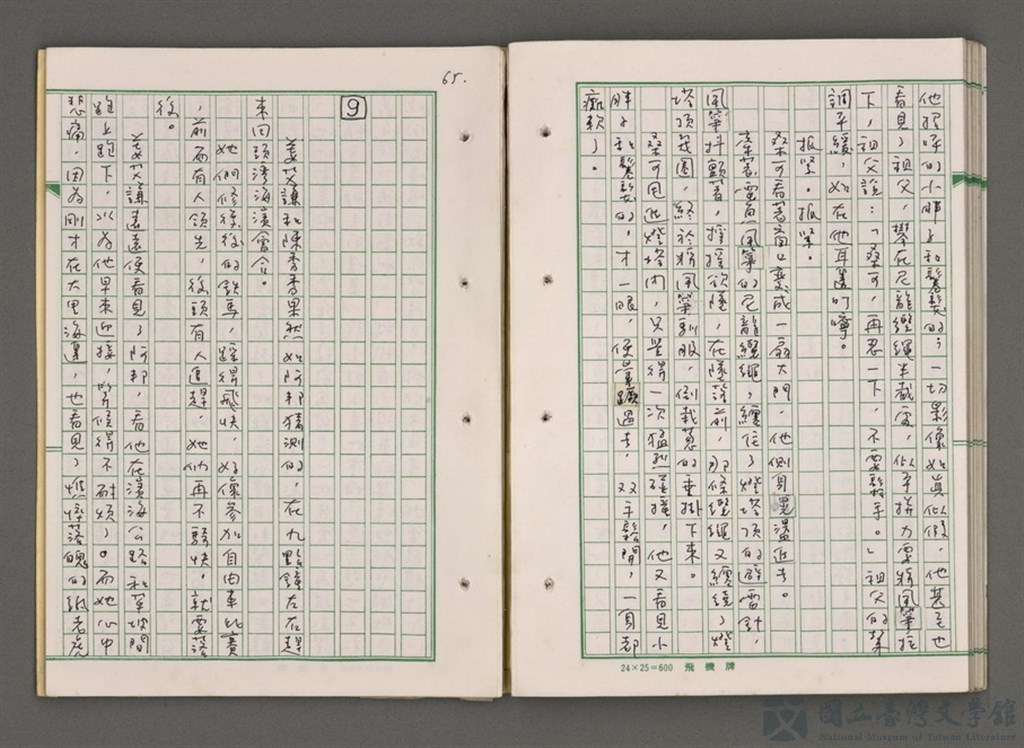 他招呼的小胖子和鬈髮的，一切影像如真似假，他甚至也
看見了祖父，攀在尼龍纜繩半截處，似乎拼力要將風箏拉
下，祖父說：「桑可，再忍一下，不要鬆手。」祖父的聲
調平緩，如在他耳邊叮嚀。
抓緊。抓緊。
桑可看著窗口變成一扇大門，他側身晃盪進去。
牽著風箏的尼龍纜繩，纏住了燈塔頂的避雷針，
風箏抖顫著，搖搖欲墜，在墜落前，那條纜繩又纏繞了燈
塔頂幾圈，終於將風箏馴服，倒栽蔥的垂掛下來。
桑可甩進燈塔內，只覺得一次猛烈碰撞，他又看見小
胖子和鬈髮的，才一眼，便暈蹶過去，雙手鬆開，一身都
癱軟了。
24×25=600 飛機牌
65.
9
姜艾謙和陳香香果然如阿邦猜測的，在九點鐘左右趕
來回頭灣海濱會合。
她們修後的鐵馬，踩得飛快，好像參加自由車比賽
，前面有人領先，後頭有人追趕，她們再不騎快，就要落
後。
姜艾謙遠遠便看見了阿邦，看他在濱海公路和草坡間
跑上跑下，以為他早來迎接，等候得不耐煩了。而她心中
悲痛，因為剛才在大里海邊，也看見了憔悴落魄的紙老虎
國立臺灣文學館
National Museum of Taiwan Literature